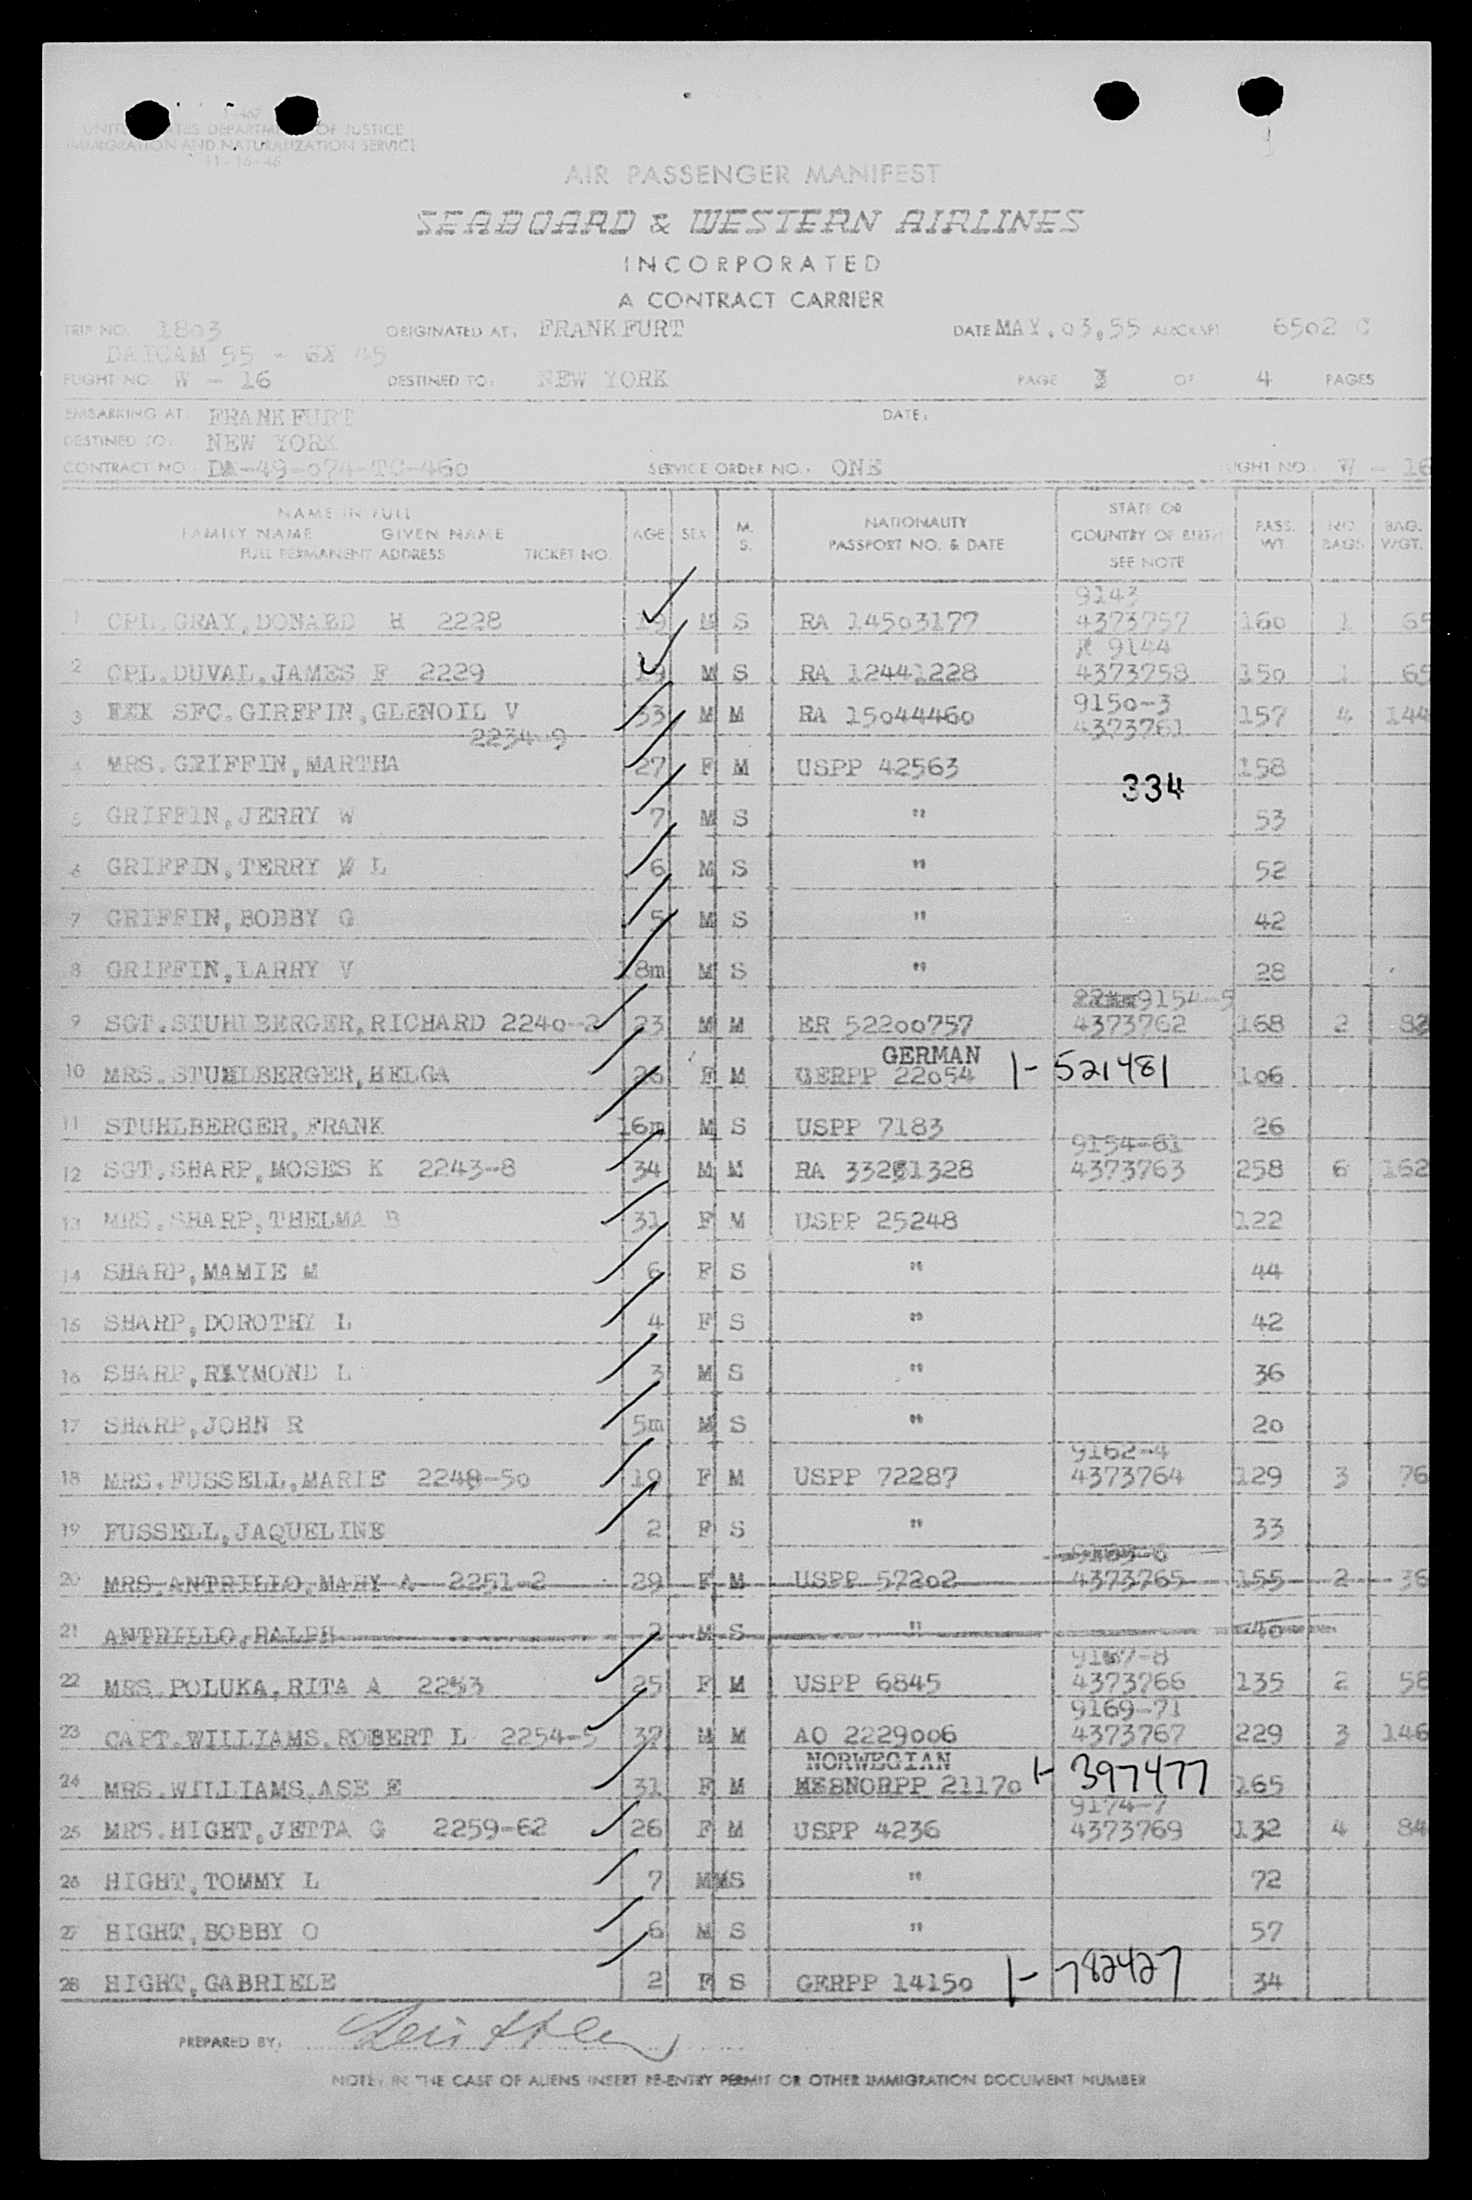 I-467
UNITED STATES DEPARTMENT OF JUSTICE
IMMIGRATION AND NATURALIZATION SERVICE
11-16-46
AIR PASSENGER MANIFEST
SEABOARD & WESTERN AIRLINES
INCORPORATED
A CONTRACT CARRIER
TRIP NO. 1803 ORIGINATED AT: FRANKFURT DATE MAY.03,55 AIRCRAFT 6502 C
DAICAM 55 - 6X 45
FLIGHT NO. W - 16 DESTINED TO: NEW YORK PAGE 3 OF 4 PAGES
EMBARKING AT: FRANKFURT DATE:
DESTINED TO: NEW YORK
CONTRACT NO. DA-49-074-TC-460 SERVICE ORDER NO.: ONE FLIGHT NO. W - 16
NAME IN FULL
FAMILY NAME GIVEN NAME
FULL PERMANENT ADDRESS TICKET NO. AGE SEX M. S. NATIONALITY PASSPORT NO. & DATE STATE OR COUNTRY OF BIRTH SEE NOTE PASS. WT. NO. BAGS BAG. WGT.
9143
1 CPL.GRAY,DONALD H 2228 19 M S RA 14503177 4373757 160 1 65
9144
2 CPL.DUVAL,JAMES F 2229 19 M S RA 12441228 4373758 150 1 65
9150-3
3 SFC.GIRFFIN,GLENOIL V 33 M M RA 15044460 4373761 157 4 144
2234-9
4 MRS.GRIFFIN,MARTHA 27 F M USPP 42563 158
334
5 GRIFFIN,JERRY W 7 M S " 53
6 GRIFFIN,TERRY L 6 M S " 52
7 GRIFFIN,BOBBY G 5 M S " 42
8 GRIFFIN,LARRY V 18m M S " 28
9154-5
9 SGT.STUHLBERGER,RICHARD 2240-2 23 M M ER 52200757 4373762 168 2 82
GERMAN
10 MRS.STUHLBERGER,HELGA 26 F M GERPP 22054 1-521481 106
11 STUHLBERGER,FRANK 16m M S USPP 7183 26
9154-61
12 SGT.SHARP,MOSES K 2243-8 34 M M RA 33251328 4373763 258 6 162
13 MRS.SHARP,THELMA B 31 F M USPP 25248 122
14 SHARP,MAMIE M 6 F S " 44
15 SHARP,DOROTHY L 4 F S " 42
16 SHARP,RAYMOND L 3 M S " 36
17 SHARP,JOHN R 5m M S " 20
9162-4
18 MRS.FUSSELL,MARIE 2248-50 19 F M USPP 72287 4373764 129 3 76
19 FUSSELL,JAQUELINE 2 F S " 33
9165-6
20 MRS.ANTRILLO,MARY A 2251-2 29 F M USPP 57202 4373765 155 2 36
21 ANTRILLO,RALPH 2 M S " 40
9167-8
22 MRS.POLUKA,RITA A 2253 25 F M USPP 6845 4373766 135 2 58
9169-71
23 CAPT.WILLIAMS.ROBERT L 2254-5 37 M M AO 2229006 4373767 229 3 146
NORWEGIAN
24 MRS.WILLIAMS,ASE E 31 F M NORPP 21170 1-397477 165
9174-7
25 MRS.HIGHT,JETTA G 2259-62 26 F M USPP 4236 4373769 132 4 84
26 HIGHT,TOMMY L 7 M S " 72
27 HIGHT,BOBBY O 6 M S " 57
28 HIGHT,GABRIELE 2 F S GERPP 14150 1-782427 34
PREPARED BY:
NOTE: IN THE CASE OF ALIENS INSERT RE-ENTRY PERMIT OR OTHER IMMIGRATION DOCUMENT NUMBER